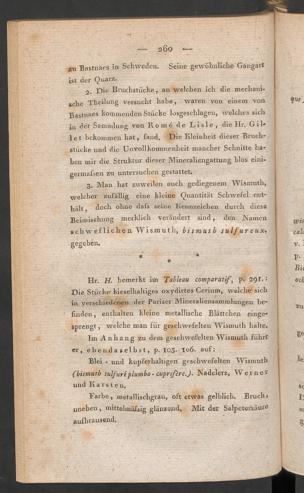 — 260 —
zu Bastnaes in Schweden. Seine gewöhnliche Gangart
ist der Quarz.
2. Die Bruchstücke, an welchen ich die mechani-
sche Theilung versucht habe, waren von einem von
Bastnaes kommenden Stücke losgeschlagen, welches sich
in der Sammlung von Romé de Lisle, die Hr. Gil-
let bekommen hat, fand. Die Kleinheit dieser Bruch-
stücke und die Unvollkommenheit mancher Schnitte ha-
ben mir die Struktur dieser Mineraliengattung blos eini-
germaſsen zu untersuchen gestattet.
3. Man hat zuweilen auch gediegenem Wismuth,
welcher zufällig eine kleine Quantität Schwefel ent-
hält, doch ohne daſs seine Kennzeichen durch diese
Beimischung merklich verändert sind, den Namen
schweflichen Wismuth, bismuth sulfureux,
gegeben.
* * *
Hr. H. bemerkt im Tableau comparatif, p. 291.:
Die Stücke kieselhaltiges oxydirtes Cerium, welche sich
in verschiedenen der Pariser Mineraliensammlungen be-
finden, enthalten kleine metallische Blättchen einge-
sprengt, welche man für geschwefelten Wismuth halte.
Im Anhang zu dem geschwefelten Wismuth führt
er, ebendaselbst, p. 105. 106. auf:
Blei- und kupferhaltigen geschwefelten Wismuth
(bismuth sulfuré plumbo-cuprifère.). Nadelerz, Werner
und Karsten.
Farbe, metallischgrau, oft etwas gelblich. Bruch,
uneben, mittelmäſsig glänzend. Mit der Salpetersäure
aufbrausend.